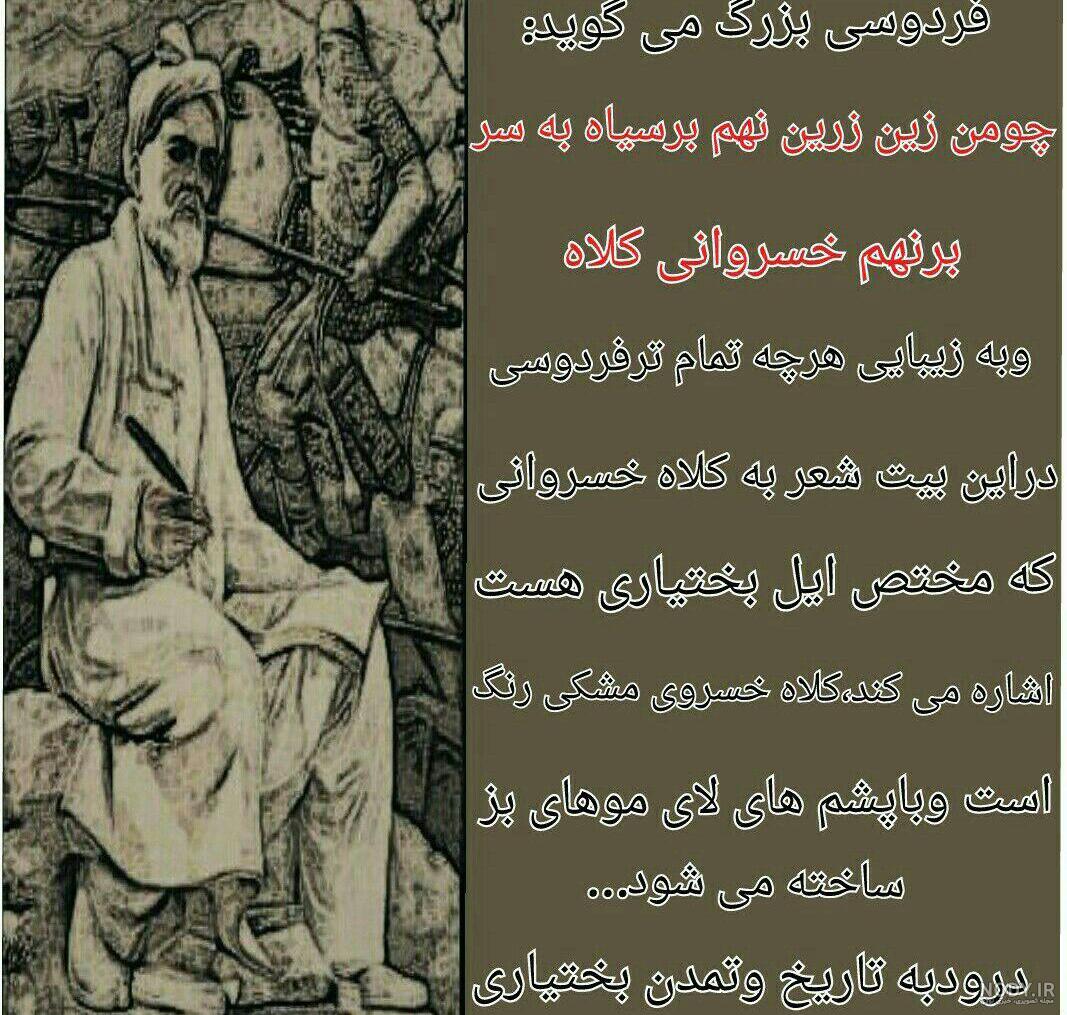 فردوسی بزرگ می گوید:
چومن زین زرین نهم برسیاه به سر
برنهم خسروانی کلاه
وبه زیبایی هرچه تمام ترفردوسی
دراین بیت شعر به کلاه خسروانی
که مختص ایل بختیاری هست
اشاره می کند،کلاه خسروی مشکی رنگ
است وباپشم های لای موهای بز
ساخته می شود...
درودبه تاریخ وتمدن بختیاری